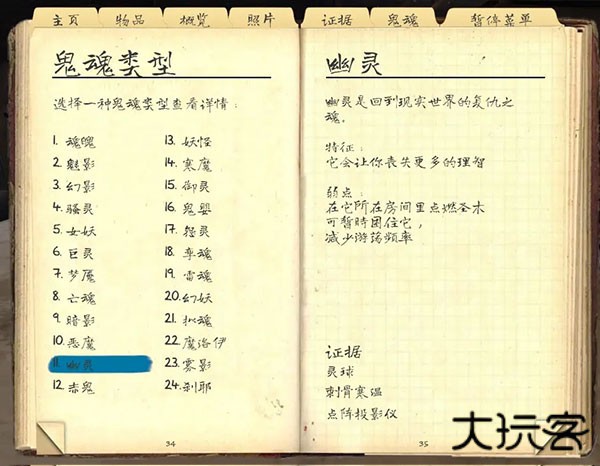 主页 物品 概览 照片 证据 鬼魂 暂停菜单
鬼魂类型
选择一种鬼魂类型查看详情：
1. 魂魄
2. 魅影
3. 幻影
4. 骚灵
5. 女妖
6. 巨灵
7. 梦魇
8. 亡魂
9. 暗影
10. 恶魔
11. 幽灵
12. 赤鬼
13. 妖怪
14. 寒魔
15. 御灵
16. 鬼婴
17. 怨灵
18. 孪魂
19. 雷魂
20. 幻妖
21. 拟魂
22. 魔洛伊
23. 雾影
24. 刹耶
34
幽灵
幽灵是回到现实世界的复仇之
魂.
特征：
它会让你丧失更多的理智
弱点：
在它所在房间里点燃圣木
可暂时困住它，
减少游荡频率
证据
灵球
刺骨寒温
点阵投影仪
35
大玩客